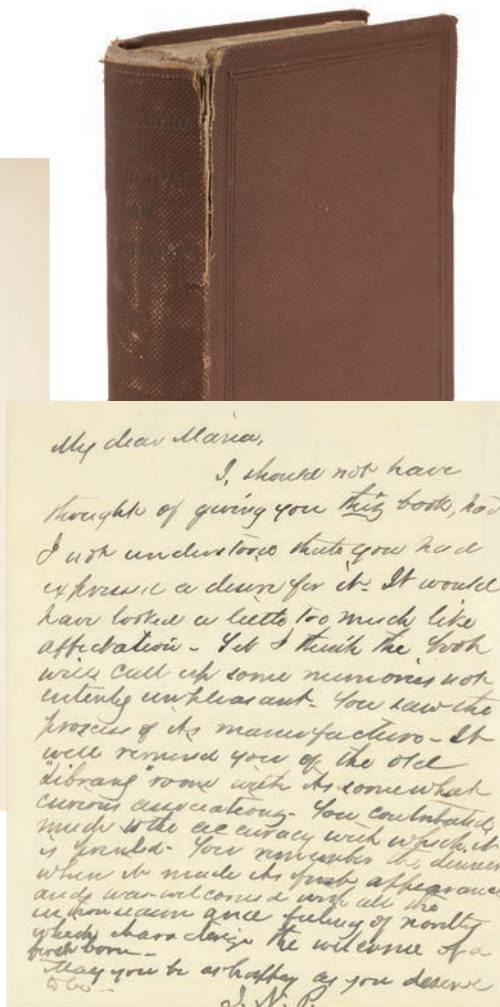 My dear Maria,
I, should not have
thought of giving you this book, had
I not understood that you had
expressed a desire for it. It would
have looked a little too much like
affectation - Yet I think the book
will call up some memories not
entirely unpleasant. You saw the
process of its manufacture - It
will remind you of the old
"Library" room with its somewhat
curious associations - You contributed
much to the accuracy with which it
is printed. You remember the dinner
when it made its first appearance
and was welcomed with all the
enthusiasm and feeling of novelty
which characterize the welcome of a
first born -
May you be as happy as you deserve
to be -
J. N. P.